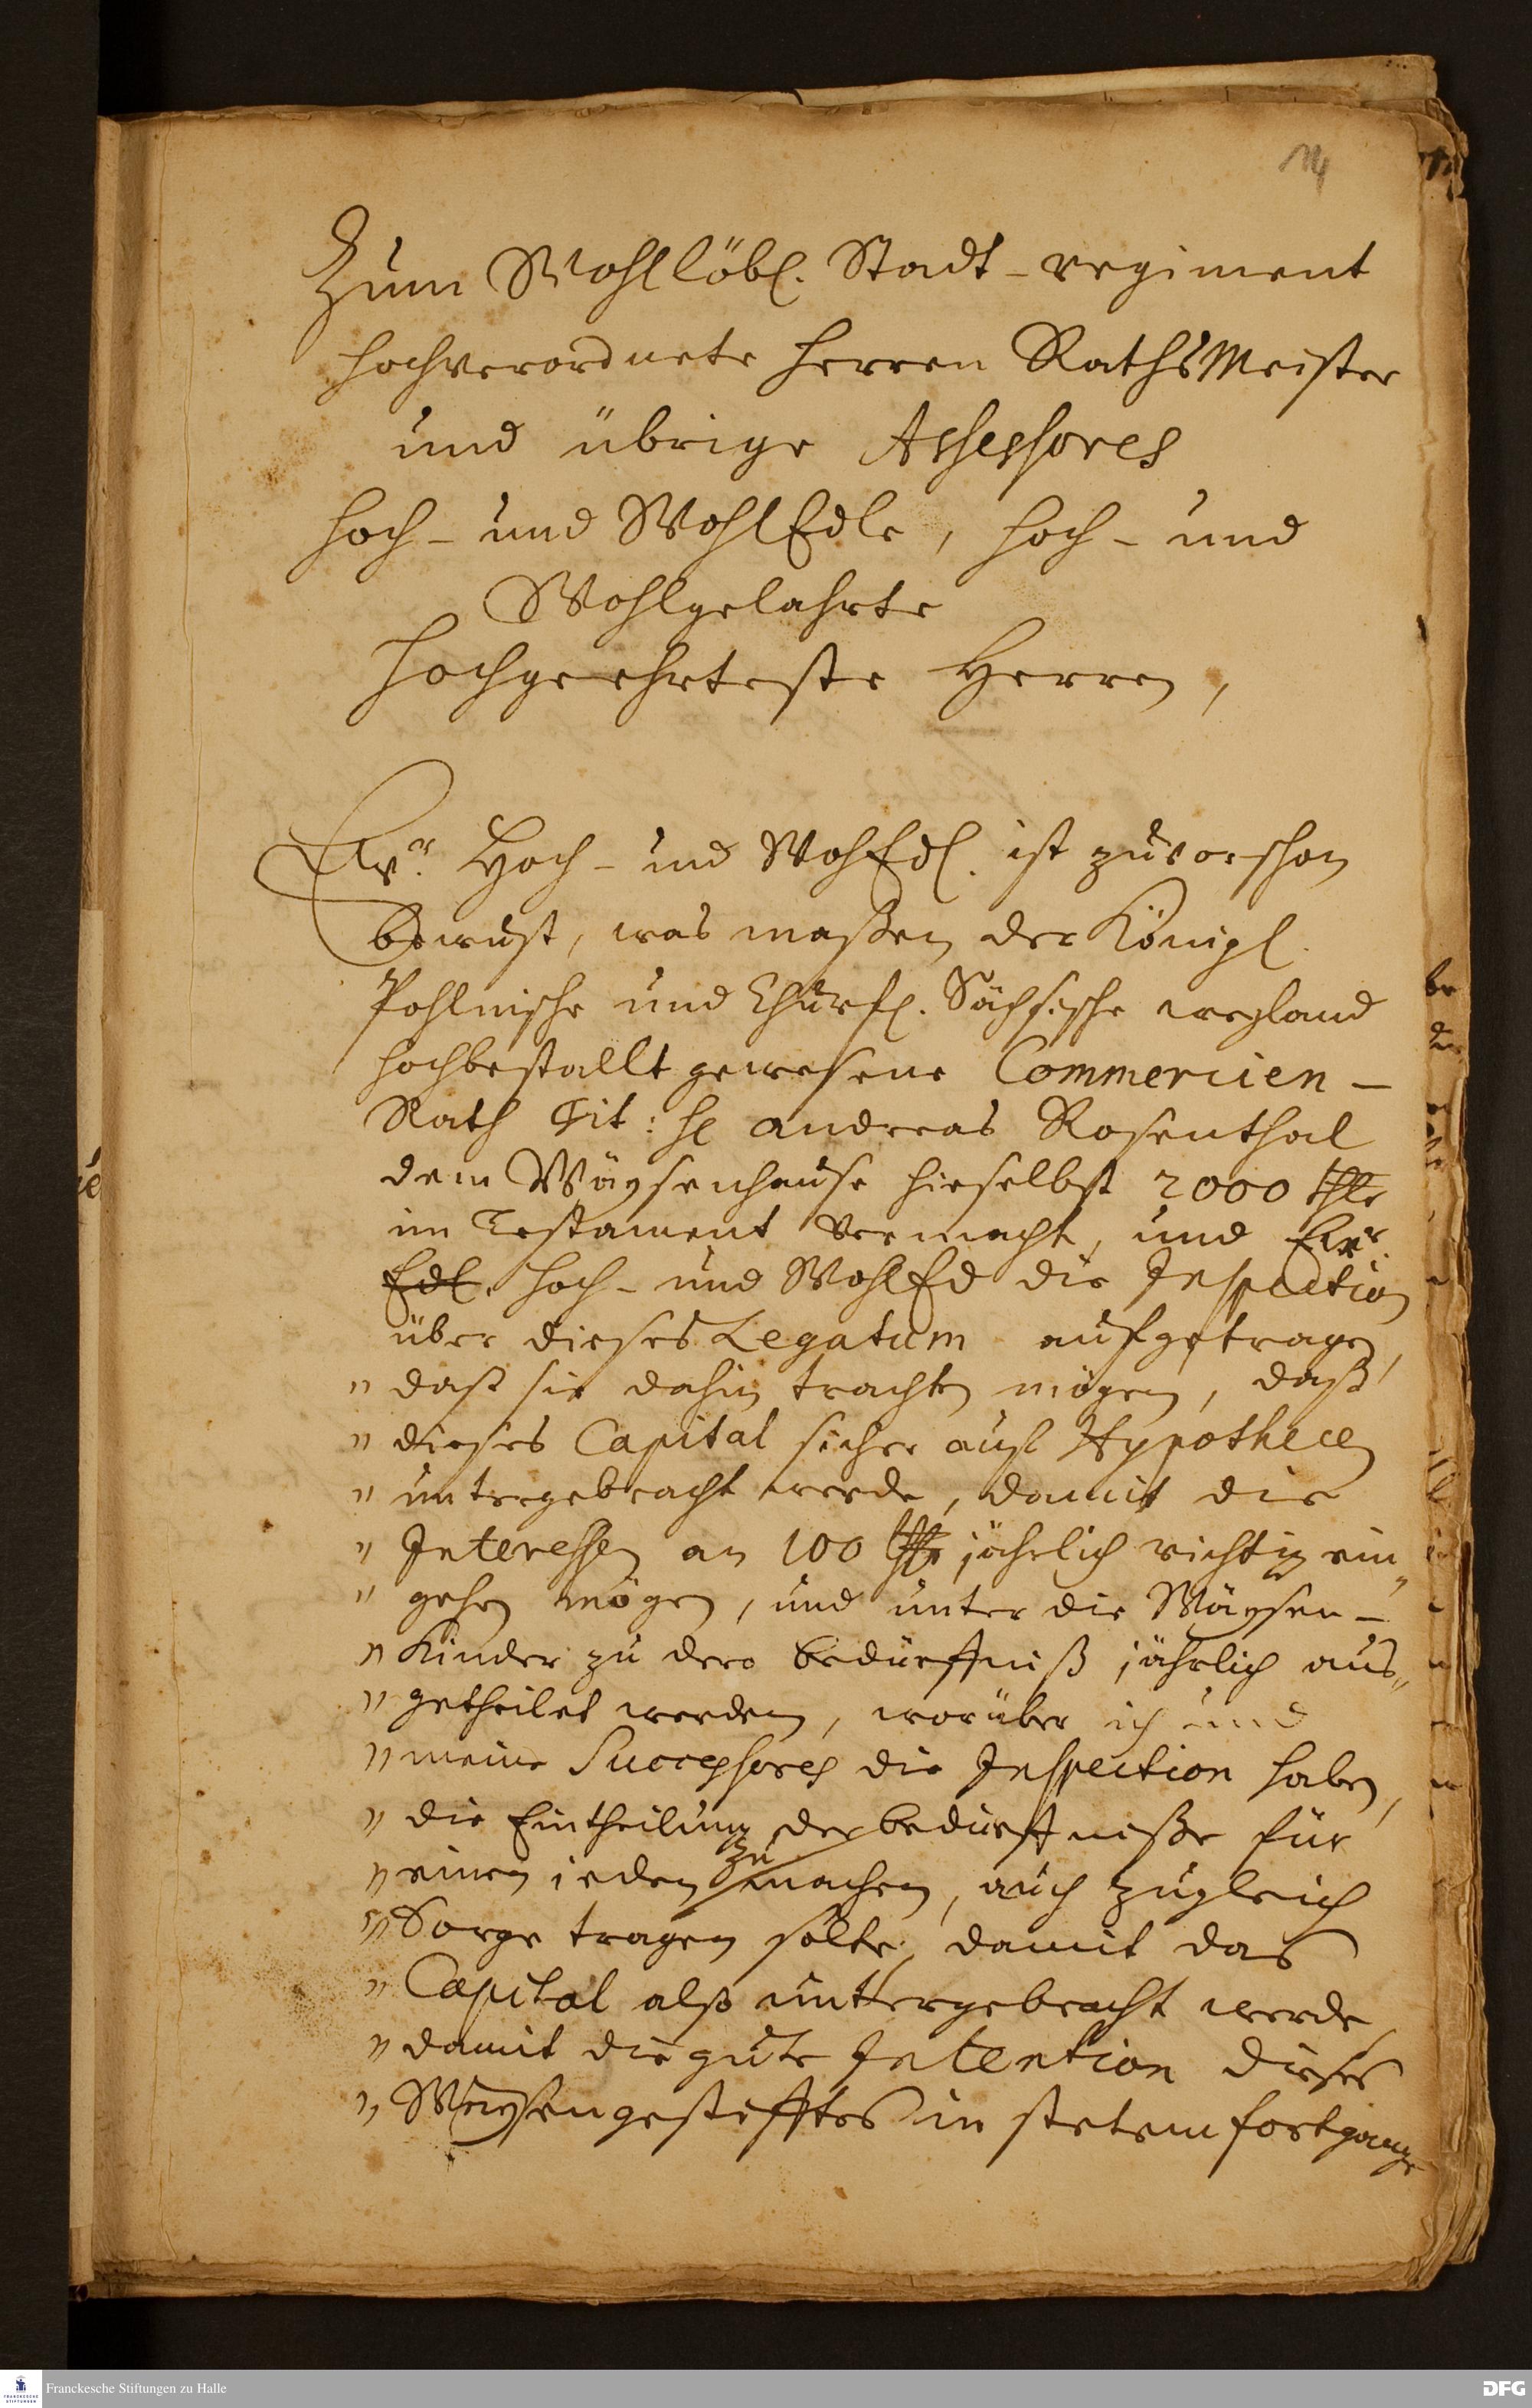 14
Zum Wohllöbl. Stadt-regiment
hochverordnete herren RathsMeister
und übrige Assessores
hoch- und WohlEdle, hoch- und
Wohlgelahrte
hochgeehrteste Herren,
Ewr. Hoch- und WohlEdl. ist zuvor schon
bewust, was maßen der Königl.
Pohlnische und Churfl. Sächsische weyland
hochbestallt gewesene Commercien-
Rath Tit: H. Andreas Rosenthal
dem Wäysenhause hieselbst 2000 thlr
im Testament vermacht, und Ewr.
Edl. hoch- und WohlEd die Inspection
über dieses Legatum aufgetragen,
" daß sie dahin trachten mögen, daß
" dieses Capital sicher auf Hypothecen
" untergebracht werde, damit die
" Interessen an 100 thlr jährlich richtig ein„
" gehen mögen, und unter die Wäysen-
" Kinder zu dero bedürffniß jährlich aus„
" getheilet werden, worüber ich und
" meine Successores die Inspection haben,
" die Eintheilung der bedürffniße für
" einen jeden zu machen, auch zugleich
" Sorge tragen solte, damit das
" Capital alß untergebracht werde
" damit die gute Intention dieses
" Waysengestifftes in stetem fortgange
be
Franckesche Stiftungen zu Halle
FRANCKESCHE
STIFTUNGEN
DFG